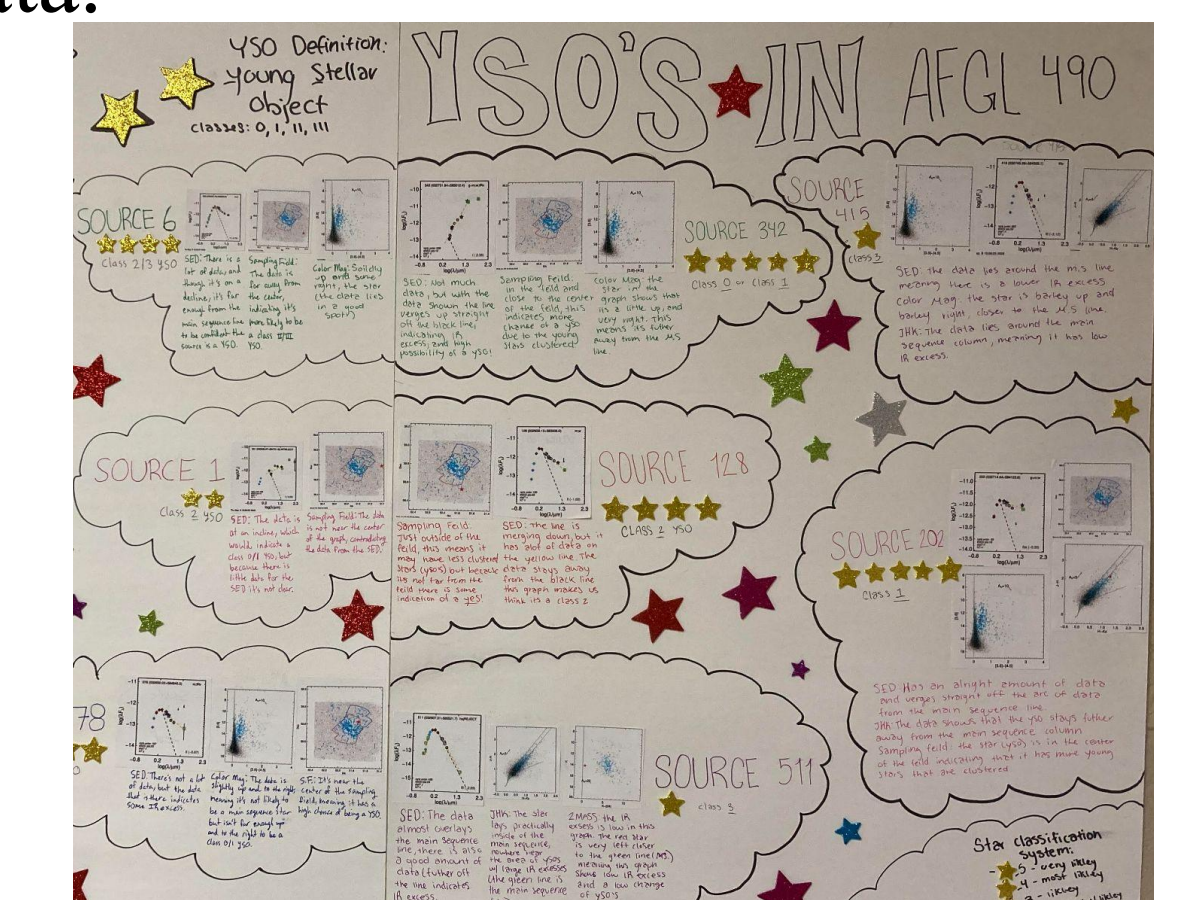 YSO Definition:
Young Stellar
Object
Classes: 0, I, II, III
YSO'S IN AFGL 490
SOURCE 6
Class 2/3 YSO
SED: There is a
lot of data, and
though it's on a
decline, it's far
enough from the
main sequence line
to be confident the
source is a YSO.
Sampling Field:
The data is
far away from
the center,
indicating it's
more likely to be
a class II/III
YSO.
Color Mag: Solidly
up and some
right, the star
(the data lies
in a good
spot!)
SOURCE 342
Class 0 or Class 1
SED: Not much
data, but with the
data shown the line
verges up straight
off the black line,
indicating IR
excess, and high
possibility of a YSO!
Sampling Feild:
in the feild and
close to the center
of the feild, this
indicates more
chance of a YSO
due to the young
stars clustered
Color Mag: the
star in the
graph shows that
its a little up, and
very right. This
means its futher
away from the M.S
line.
SOURCE
415
class 3
SED: The data lies around the m.s line
meaning there is a lower IR excess
Color Mag: the star is barley up and
barley right, closer to the M.S line.
JHK: The data lies around the main
sequence column, meaning it has low
IR excess.
SOURCE 1
Class 2 YSO
SED: The data is
at an incline, which
would indicate a
class 0/1 YSO, but
because there is
little data for the
SED it's not clear.
Sampling Field: The data
is not near the center
of the graph, contradicting
the data from the SED.
SOURCE 128
CLASS 2 YSO
Sampling Feild:
Just outside of the
feild, this means it
may have less clustered
stars (YSOs) but because
its not far from the
feild there is some
indication of a yes!
SED: The line is
merging down, but it
has alot of data on
the yellow line. The
data stays away
from the black line
this graph makes us
think its a class 2
SOURCE 202
Class 1
SED: Has an alright amount of data
and verges straight off the arc of data
from the main sequence line.
JHK: The data shows that the YSO stays futher
away from the main sequence column
Sampling feild: the star (YSO) is in the center
of the feild indicating that it has more young
stars that are clustered
78
SED: There's not a lot
of data, but the data
that is there indicates
some IR excess.
Color Mag: The data is
slightly up and to the right,
meaning it's not likely to
be a main sequence star
but isn't far enough up
and to the right to be a
Class 0/1 YSO.
S.F.: It's near the
center of the sampling
field, meaning it has a
high chance of being a YSO.
SOURCE 511
class 3
SED: The data
almost overlays
the main sequence
line, there is also
a good amount of
data (futher off
the line indicates
IR excess.
JHK: The star
lays practically
inside of the
main sequence,
nowhere near
the area of YSOs
w/ large IR excesses
(the green line is
the main sequence
2MASS the IR
exsess is low in this
graph. The red star
is very left closer
to the green line (M.S.)
meaning this graph
shows low IR excess
and a low change
of YSO'S
Star classification
system:
- 5 - very likley
4 - most likley
3 - likley